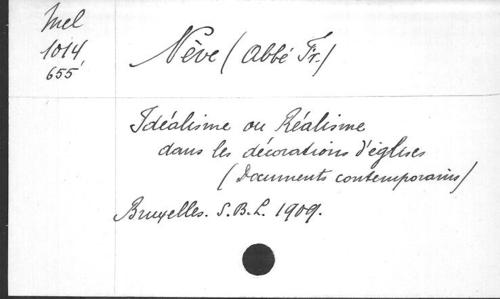 Mel
1014,
655
Nève (Abbé Fr.)
Idéalisme ou Réalisme
dans les décorations d'églises
(Documents contemporains)
Bruxelles. S.B.L. 1909.